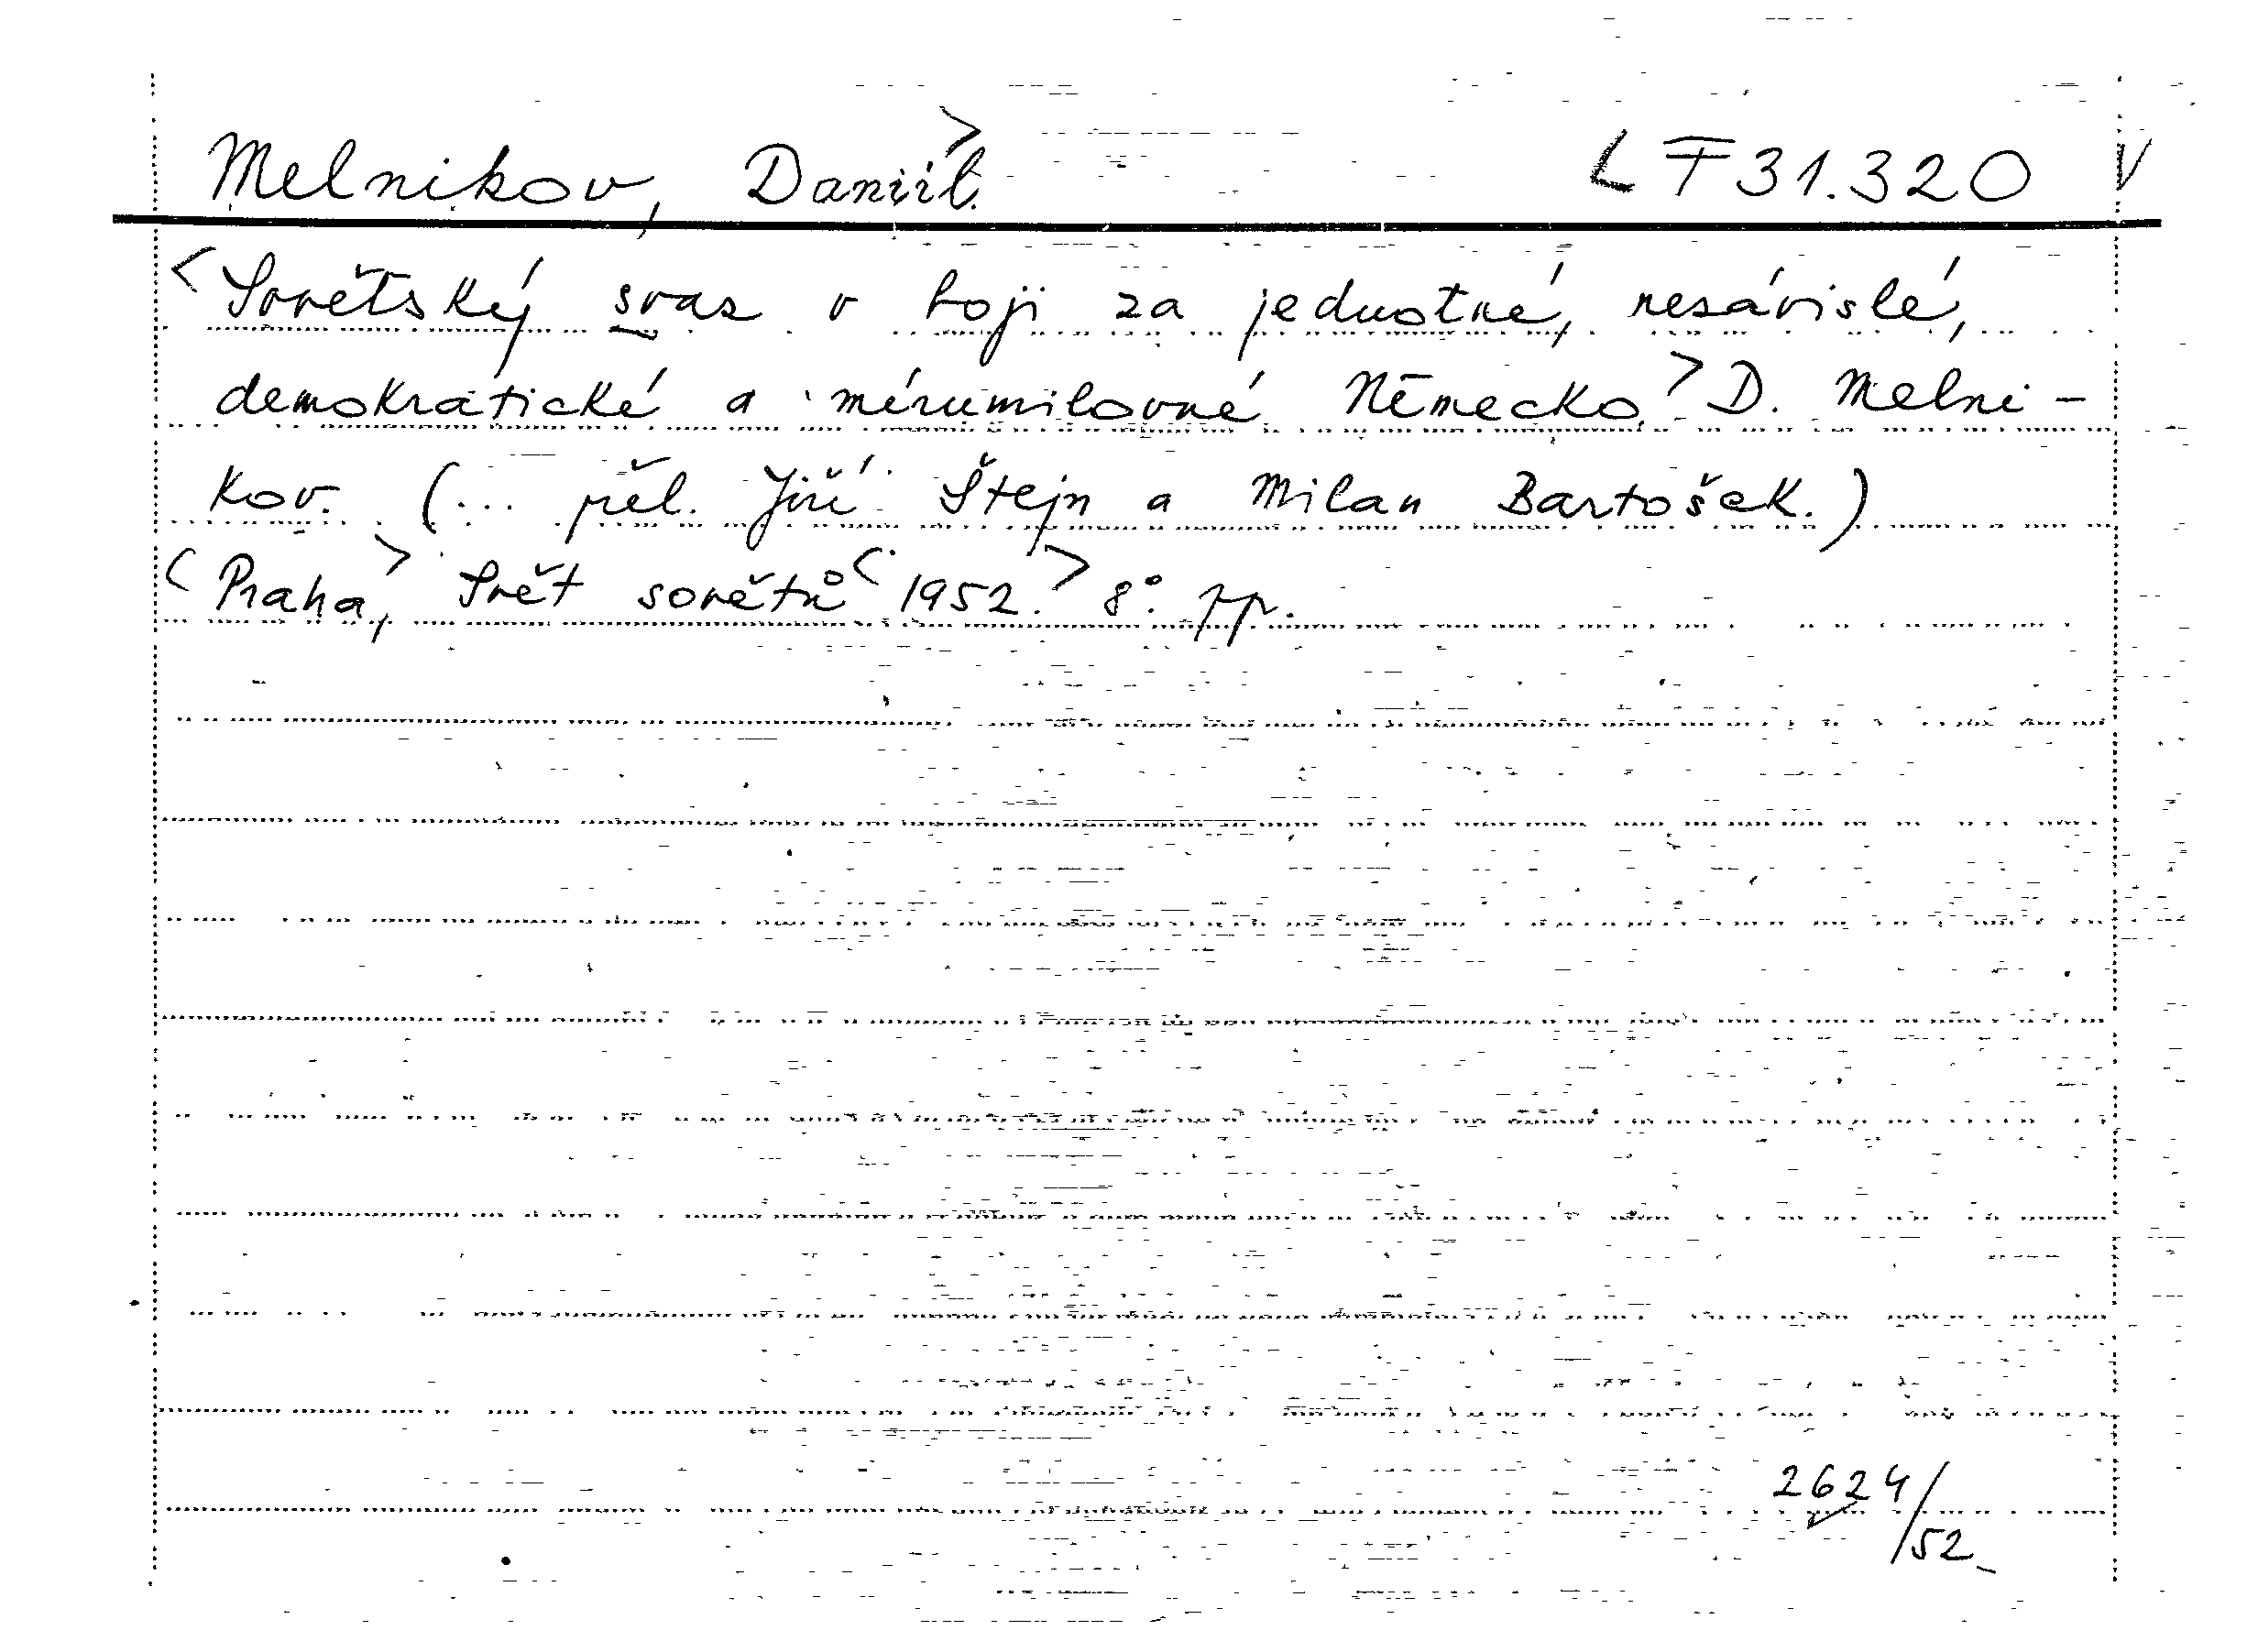 Melnikov, Daniil> LF31.320 V
<Sovětský svaz v boji za jednotné, nezávislé,
demokratické a mírumilovné Německo.> D. Melni-
kov. (... přel. Jiří Štejn a Milan Bartošek.)
<Praha,> Svět sovětů <1952.> 8°. pp.
2624/52